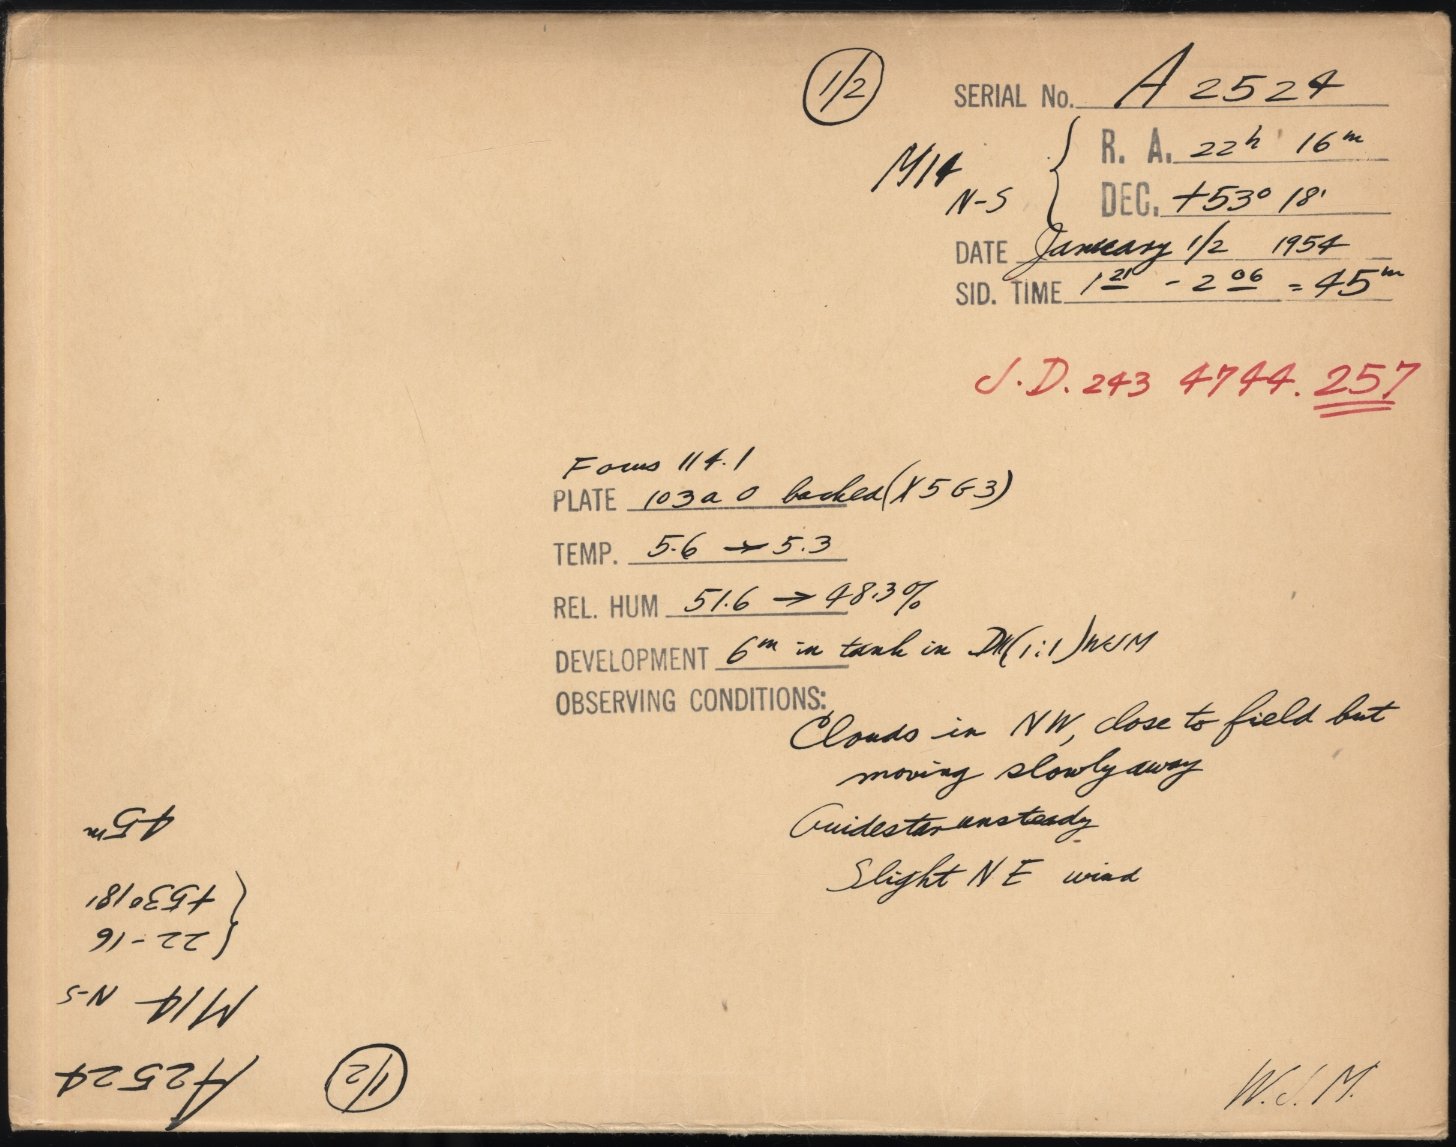 1/2
SERIAL No. A 2524
M14 N-S { R. A. 22h 16m
DEC. +53° 18'
DATE January 1/2 1954
SID. TIME 1 21 - 2 06 = 45m
J.D. 243 4744.257
Focus 114.1
PLATE 103a O backed (X5G3)
TEMP. 5.6 → 5.3
REL. HUM 51.6 → 48.3%
DEVELOPMENT 6m in tank in DK(1:1) WJM
OBSERVING CONDITIONS:
Clouds in NW, close to field but
moving slowly away
Guidestar unsteady
Slight NE wind
W.J.M.
1/2
A2524
M14 N-S
22-16 }
+53°18' }
45m